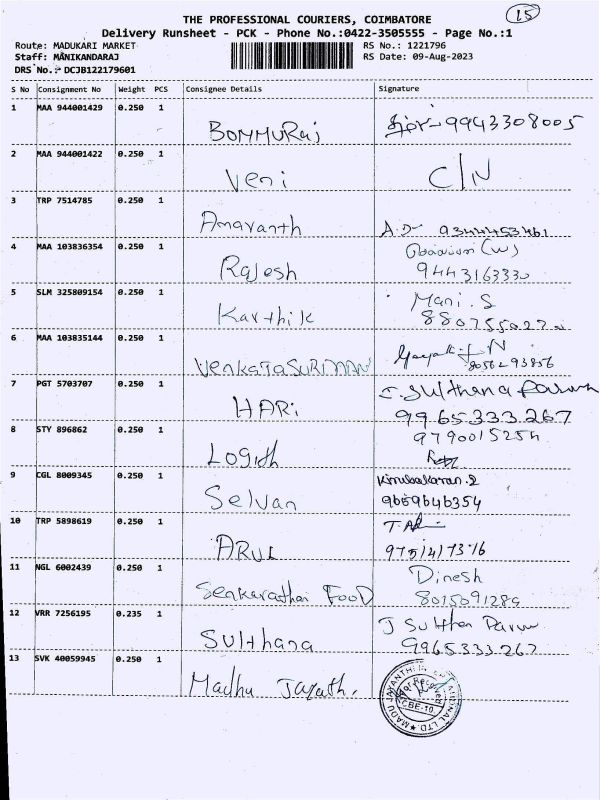 15
THE PROFESSIONAL COURIERS, COIMBATORE
Delivery Runsheet - PCK - Phone No.:0422-3505555 - Page No.:1
Route: MADUKARI MARKET RS No.: 1221796
Staff: MANIKANDARAJ RS Date: 09-Aug-2023
DRS No.: DCJB122179601
S No Consignment No Weight PCS Consignee Details Signature
1 MAA 944001429 0.250 1
BOMMURaj 9943308005
2 MAA 944001422 0.250 1
Veni C/N
3 TRP 7514785 0.250 1
Amavanth A.D 9344453461
4 MAA 103836354 0.250 1
Rajesh (W)
9443163330
5 SLM 325809154 0.250 1
Karthik Mani.S
6 MAA 103835144 0.250 1
8056293856
7 PGT 5703707 0.250 1
HARi Sulthana
9965333267
8 STY 896862 0.250 1
9790015254
Logith
9 CGL 8009345 0.250 1
Kirubakaran.S
Selvan 9659646354
10 TRP 5898619 0.250 1
ARUL 9751417316
11 NGL 6002439 0.250 1
Dinesh
Senkarathai FooD 8015091289
12 VRR 7256195 0.235 1
J Sulthan
Sulthana 9965333267
13 SVK 40059945 0.250 1
Madhu Jayath.
CBE-10